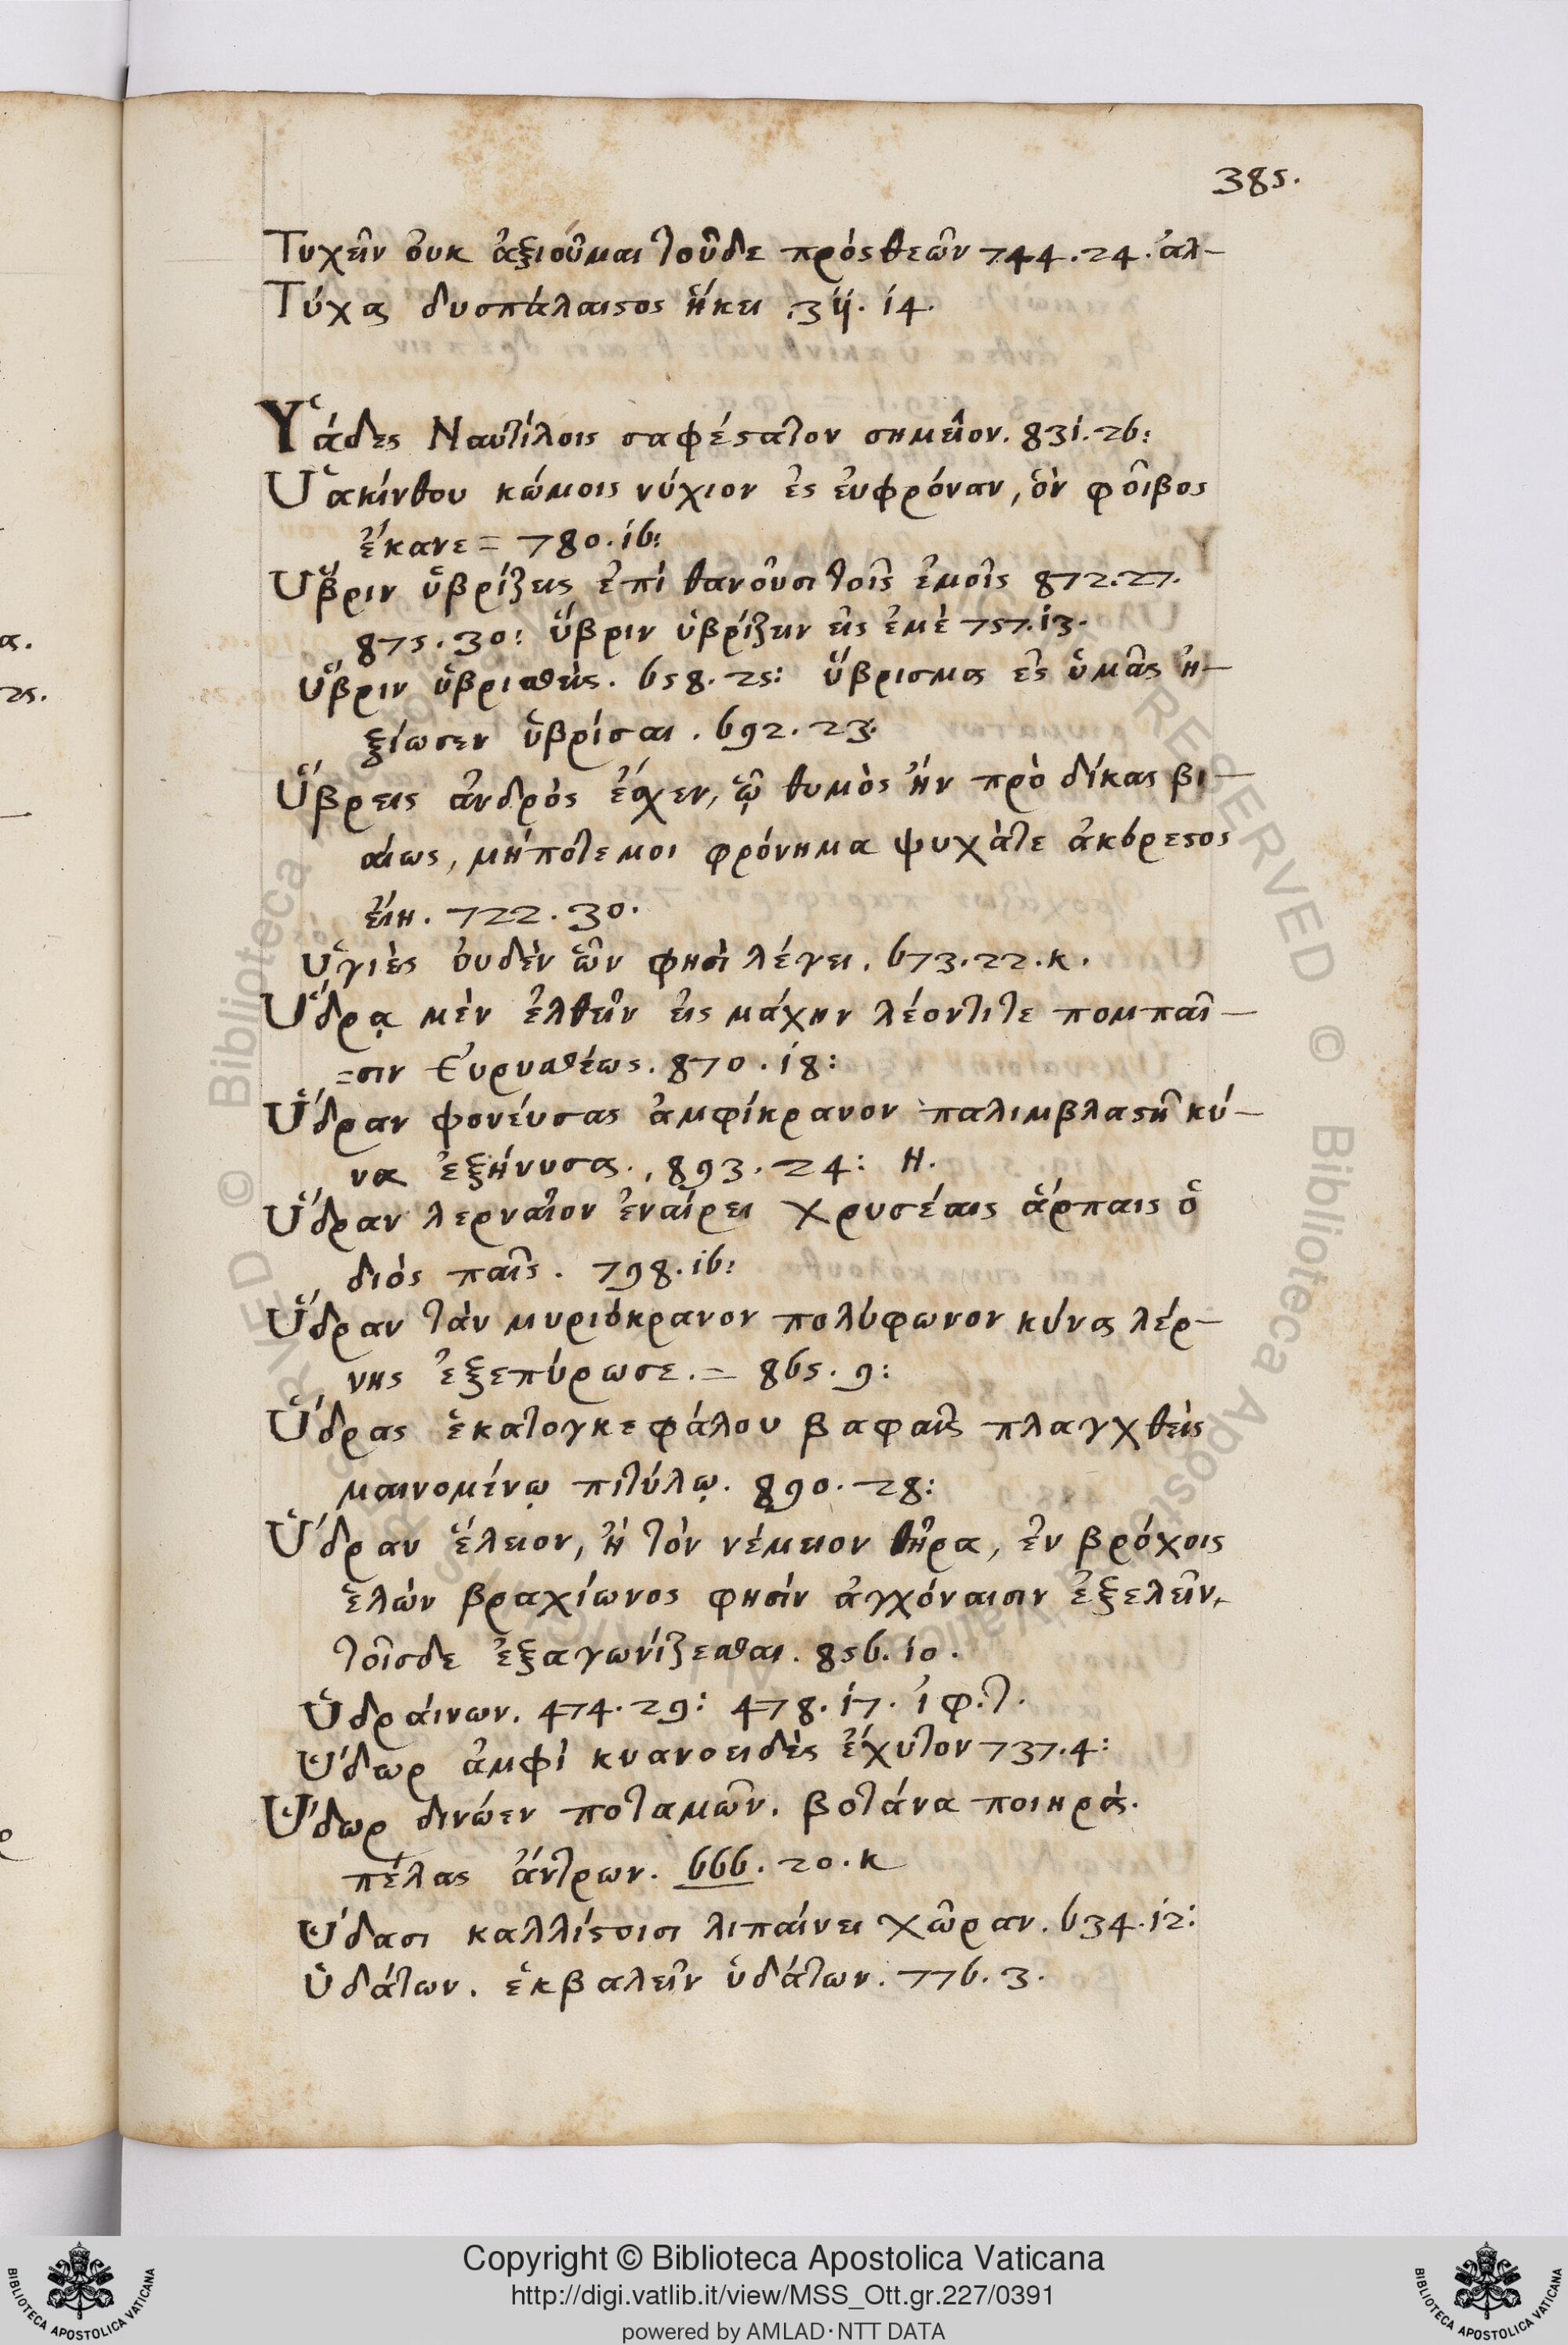 385.
Τυχεῖν ὀυκ ἀξιοῦμαι τοῦδε πρὸς θεῶν 744.24. ἀλ-
Τύχας δυσπάλαιςος ἥκει .311. 14.
Ὑάδες Ναυτίλοις σαφέςατον σημεῖον. 831.26:
Ὑακίνθου κώμοις νύχιον ἐς ἐυφρόναν, ὃν φοῖβος
ἔκανε = 780.16:
Ὕβριν ὑβρίζεις ἐπὶ θανοῦσι τοῖς ἐμοῖς 872.27.
875.30: ὕβριν ὑβρίζειν εἰς ἐμὲ 757.13.
Ὕβριν ὑβρισθεὶς. 658.25: ὕβρισμας ἐς ὑμᾶς ἠ-
ξίωσεν ὑβρίσαι. 692.23.
Ὕβρεις ἀνδρὸς ἔσχεν, ᾧ θυμὸς ἦν πρὸ δίκας βι-
αίως, μήποτεμοι φρόνημα ψυχάτε ἀκόρεςος
εἴη. 722.30.
Ὑγιὲς ὀυδὲν ὧν φησὶ λέγει. 673.22.κ.
Ὕδρᾳ μὲν ἐλθεῖν εἰς μάχην λέοντιτε πομπαῖ-
=σιν Εὐρυσθέως. 870.18:
Ὕδραν φονέυσας ἀμφίκρανον παλιμβλαςῆ κύ-
να ἐξήνυσα., 893.24: Η.
Ὕδραν λερναῖον ἐναίρει χρυσέαις ἅρπαις ὁ
διὸς παῖς. 798.16:
Ὕδραν τὰν μυριόκρανον πολύφωνον κύνας λέρ-
νης ἐξεπύρωσε.= 865.9:
Ὕδρας ἑκατογκεφάλου βαφαῖς πλαγχθεὶς
μαινομένῳ πιτύλῳ. 890.28:
Ὕδραν ἕλειον, ἢ τὸν νέμειον θῆρα, ἐν βρόχοις
ἑλὼν βραχίωνος φησὶν ἀγχόναισιν ἐξελεῖν,
τοῖσδε ἐξαγωνίζεσθαι. 856.10.
Ὑδράινων. 474.29: 478.17. ἰφ.τ.
Ὕδωρ ἀμφὶ κυανοειδὲς ἔχυτον 737.4:
Ὕδωρ δινώεν ποταμῶν. βοτάνα ποιηρὰς.
πέλας ἄντρων. 666.20.κ
Ὕδασι καλλίςοισι λιπαίνει χῶραν. 634.12:
Ὑδάτων. ἐκβαλεῖν ὑδάτων. 776.3.
Copyright © Biblioteca Apostolica Vaticana
http://digi.vatlib.it/view/MSS_Ott.gr.227/0391
powered by AMLAD·NTT DATA